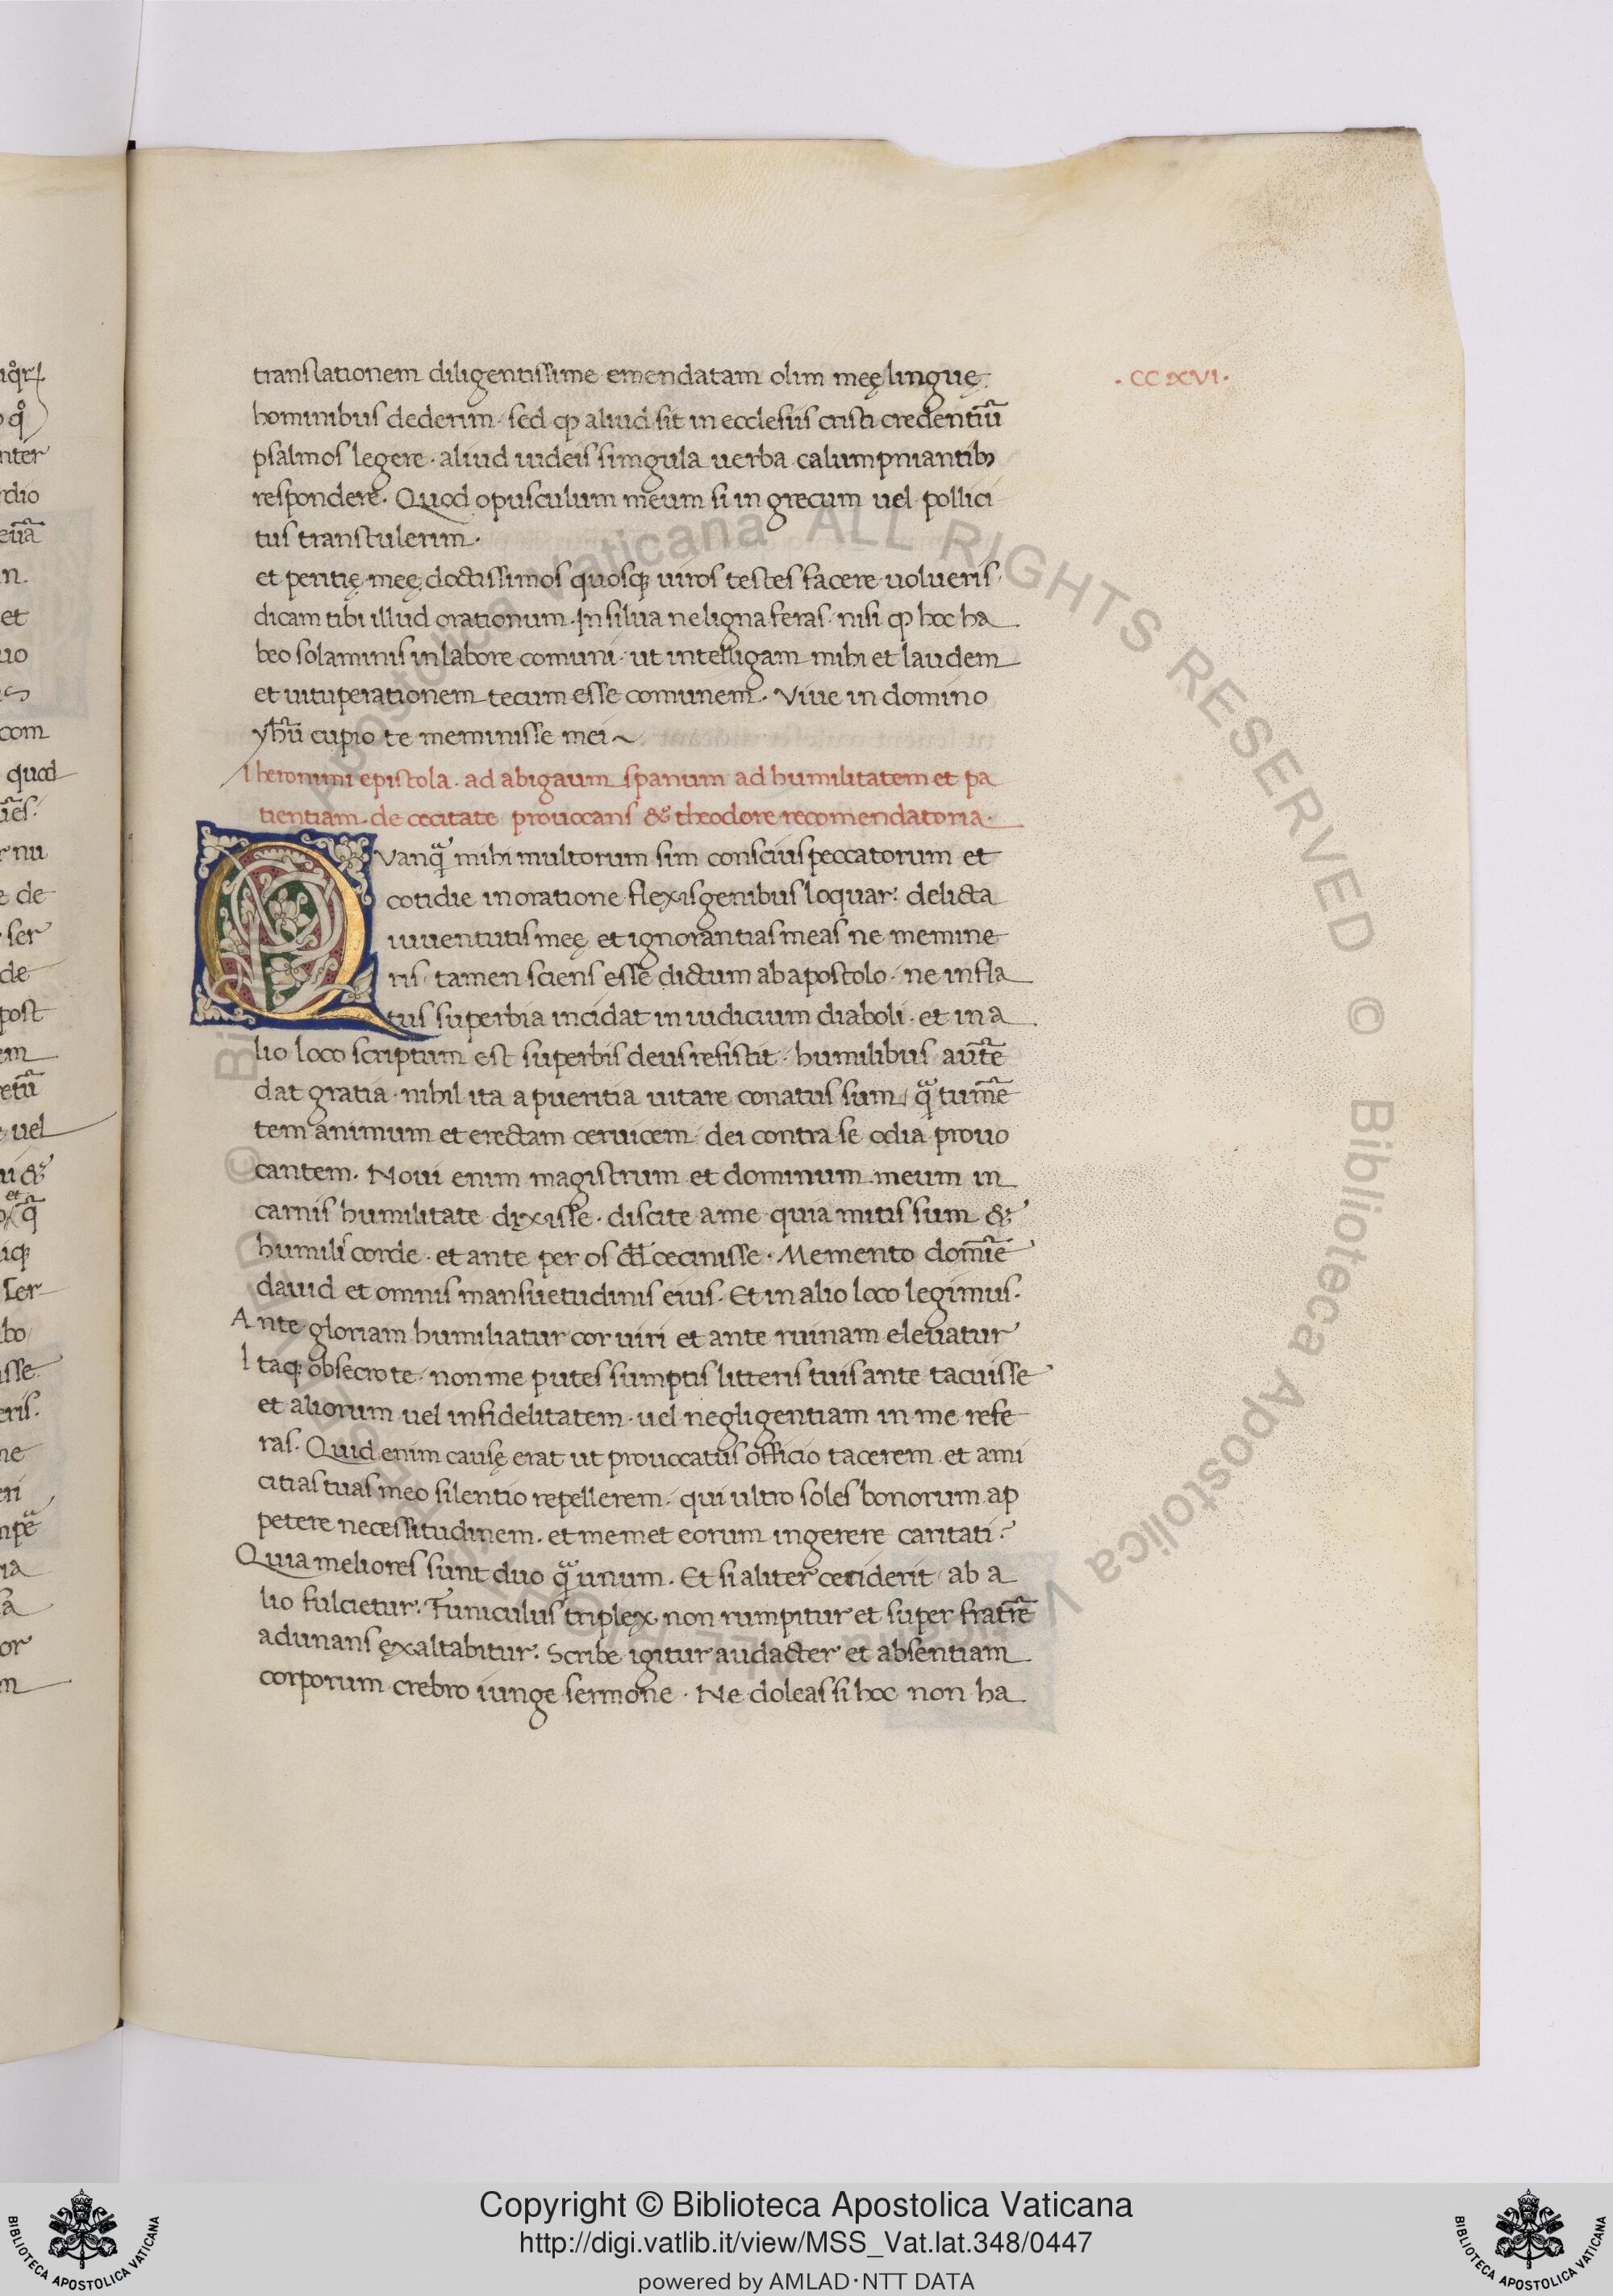 translationem diligentissime emendatam olim meę linguę
· CC XVI ·
hominibus dederim · sed ꝙ aliud sit in ecclesiis cristi credentiū
psalmos legere · aliud iudeis simgula uerba calumpniantibꝫ
respondere · Quod opusculum meum si in grecum uel pollici
tus transtulerim ·
et peritię meę doctissimos quosqꝫ uiros testes facere uolueris ·
dicam tibi illud orationum · In silua ne ligna feras · nisi ꝙ hoc ha
beo solaminis in labore comuni · ut intelligam mihi et laudem
et uituperationem tecum esse comunem · Viue in domino
yhū cupio te meminisse mei ~
Iheronimi epistola · ad abigaum spanum ad humilitatem et pa
tientiam de cecitate prouocans & theodore recomendatoria ·
Vanqᷓ mihi multorum sim conscius peccatorum et
cotidie in oratione flexis genibus loquar : delicta
iuuentutis meę et ignorantias meas ne memine
ris · tamen sciens esse dictum ab apostolo · ne infla
tus superbia incidat in iudicium diaboli · et in a
lio loco scriptum est superbis deus resistit · humilibus autē
dat gratia · nihil ita a pueritia uitare conatus sum / qᷓ tumē
tem animum et erectam ceruicem · dei contra se odia prouo
cantem · Noui enim magistrum et dominum meum in
carnis humilitate dixisse · discite a me quia mitis sum &
humilis corde · et ante per os dd̄ cecinisse · Memento domīe
dauid et omnis mansuetudinis eius · Et in alio loco legimus ·
Ante gloriam humiliatur cor uiri et ante ruinam eleuatur
Itaqꝫ obsecro te · non me putes sumptis litteris tuis ante tacuisse
et aliorum uel infidelitatem · uel negligentiam in me refe
ras · Quid enim causę erat ut prouocatus officio tacerem · et ami
citias tuas meo silentio repellerem · qui ultro soles bonorum ap
petere necessitudinem · et memet eorum ingerere caritati ·
Quia meliores sunt duo qᷓ unum · Et si aliter ceciderit / ab a
lio fulcietur · Funiculus triplex non rumpitur et super fratrē
adunans ęxaltabitur · Scribe igitur audacter et absentiam
corporum crebro iunge sermone · Ne doleas si hoc non ha
Copyright © Biblioteca Apostolica Vaticana
http://digi.vatlib.it/view/MSS_Vat.lat.348/0447
powered by AMLAD·NTT DATA